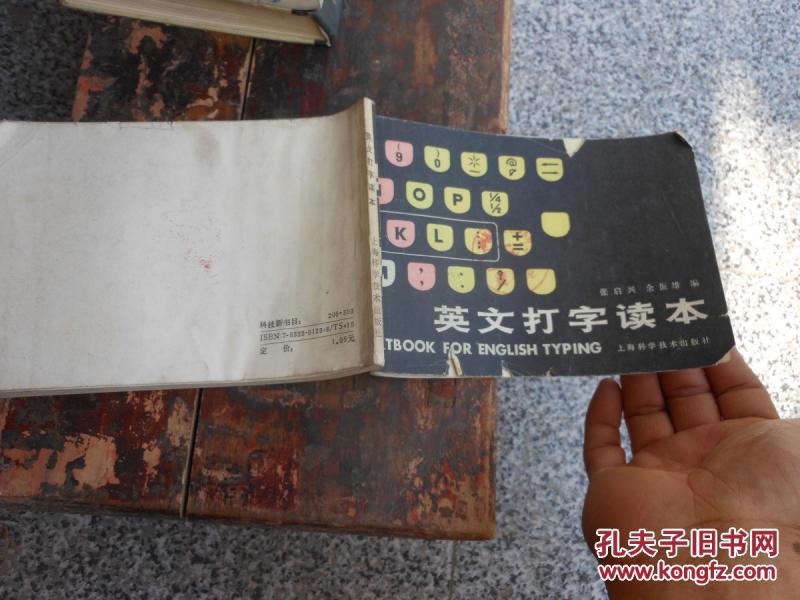 科技新书目: 206-303
ISBN 7-5323-5129-8/TS·18
定 价: 1.95元
英文打字读本
上海科学技术出版社
( 9
) 0
* -
@
O P ¼ ½
K L : ; + =
张启兴 余振雄 编
英文打字读本
TBOOK FOR ENGLISH TYPING
上海科学技术出版社
孔夫子旧书网
www.kongfz.com